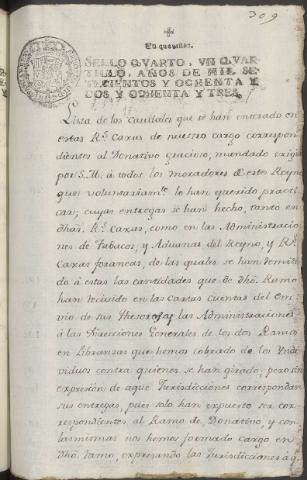 309
Un quartillo.
SELLO QVARTO, VN QVAR-
TILLO, AÑOS DE MIL SE-
TECIENTOS Y OCHENTA Y
DOS Y OCHENTA Y TRES.
Lista de los caudales que se han enterado en
estas Rs. Caxas de nuestro cargo correspon-
dientes al Donativo gracioso, mandado exigir
por S.M. á todos los moradores de este Reyno
que voluntariamte. lo han querido practi-
car; cuyas entregas se han hecho, tanto en
dhas. Rs. Caxas, como en las Administracio-
nes de Tabacos, y Aduanas del Reyno, y Rs.
Caxas foraneas, de las quales se han remiti-
do á estas las cantidades que de dho. Ramo
han incluido en las cartas cuentas del em-
vio de sus Thesoros, las Administraciones
á las Direcciones Generales de los dos Ramos
en Libranzas que hemos cobrado de los Yndi-
viduos contra quienes se han girado; pero sin
expresion de aque Jurisdicciones correspondan
sus entregas, pues solo han expuesto ser cor-
respondientes al Ramo de Donativo, y con
las mismas nos hemos formado cargo en
dho. ramo, expresando las Jurisdicciones á q.